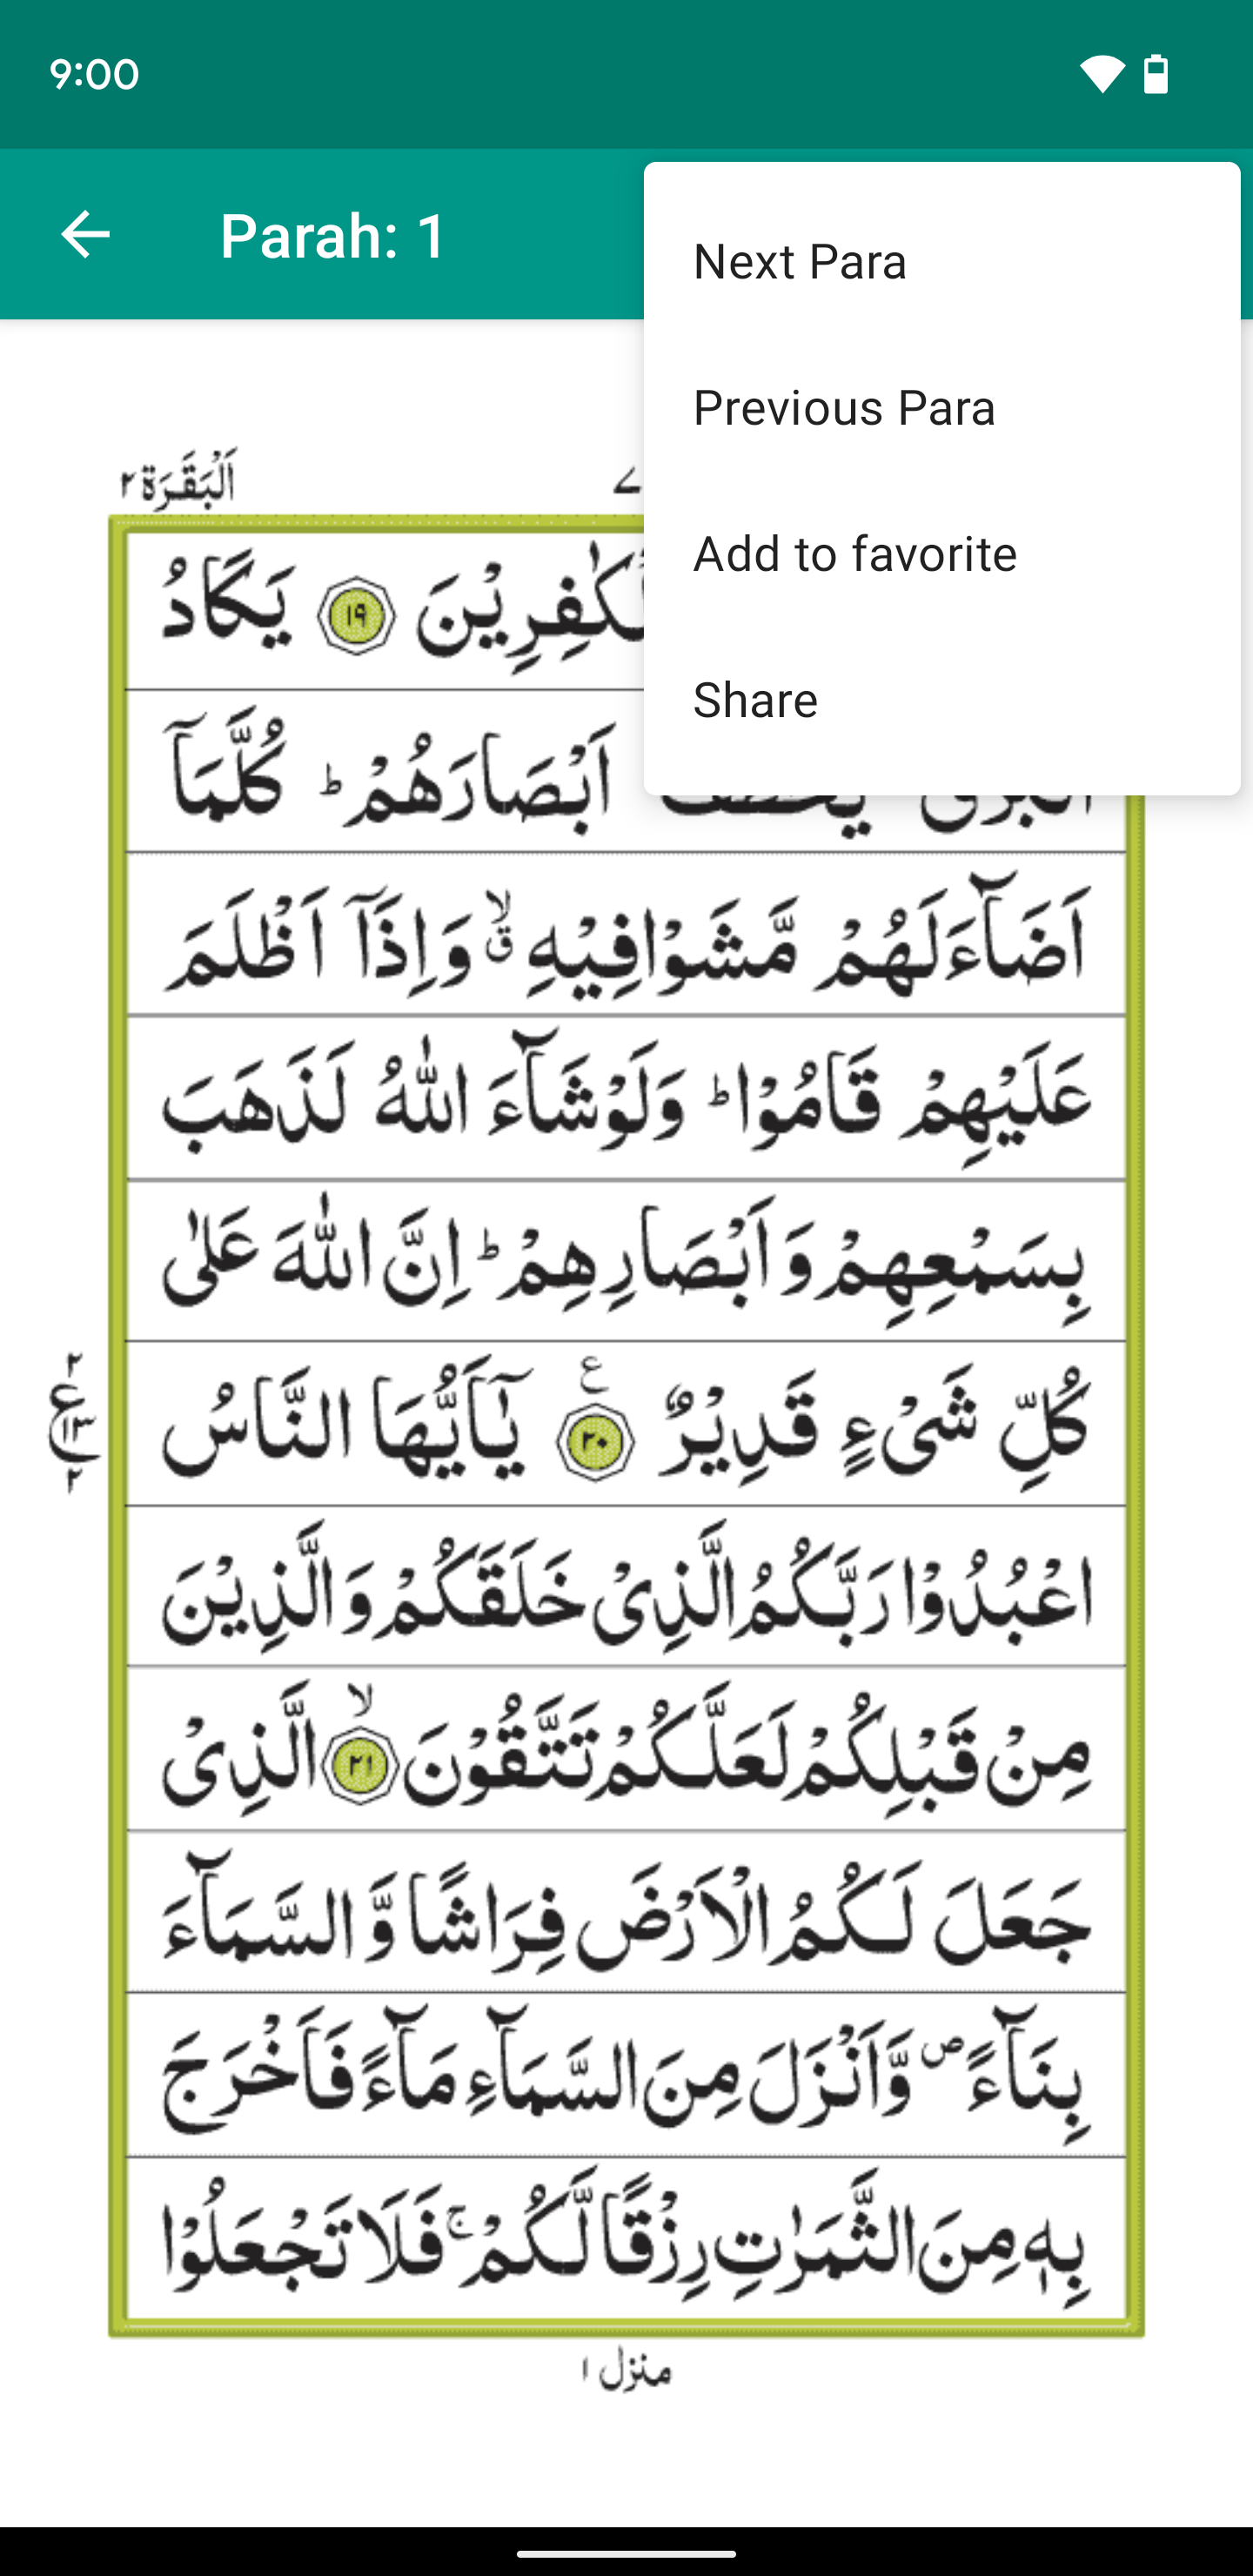 9:00
Parah: 1
Next Para
Previous Para
Add to favorite
Share
اَلْبَقَرَة ٢
ے
يَكَادُ
١٩
اَبْصَارَهُمْ ؕ كُلَّمَاۤ
اَضَآءَ لَهُمْ مَّشَوْا فِيْهِ ۙۗ وَاِذَاۤ اَظْلَمَ
عَلَيْهِمْ قَامُوْا ؕ وَلَوْ شَآءَ اللّٰهُ لَذَهَبَ
بِسَمْعِهِمْ وَاَبْصَارِهِمْ ؕ اِنَّ اللّٰهَ عَلٰى
كُلِّ شَىْءٍ قَدِيْرٌ ٢٠ ع يٰۤاَيُّهَا النَّاسُ
٢
ع
١٣
٢
اعْبُدُوْا رَبَّكُمُ الَّذِىْ خَلَقَكُمْ وَالَّذِيْنَ
مِنْ قَبْلِكُمْ لَعَلَّكُمْ تَتَّقُوْنَ ۙ ٢١ الَّذِىْ
جَعَلَ لَكُمُ الْاَرْضَ فِرَاشًا وَّالسَّمَآءَ
بِنَآءً ص وَّاَنْزَلَ مِنَ السَّمَآءِ مَآءً فَاَخْرَجَ
بِهٖ مِنَ الثَّمَرٰتِ رِزْقًا لَّكُمْ ۚ فَلَا تَجْعَلُوْا
منزل ١